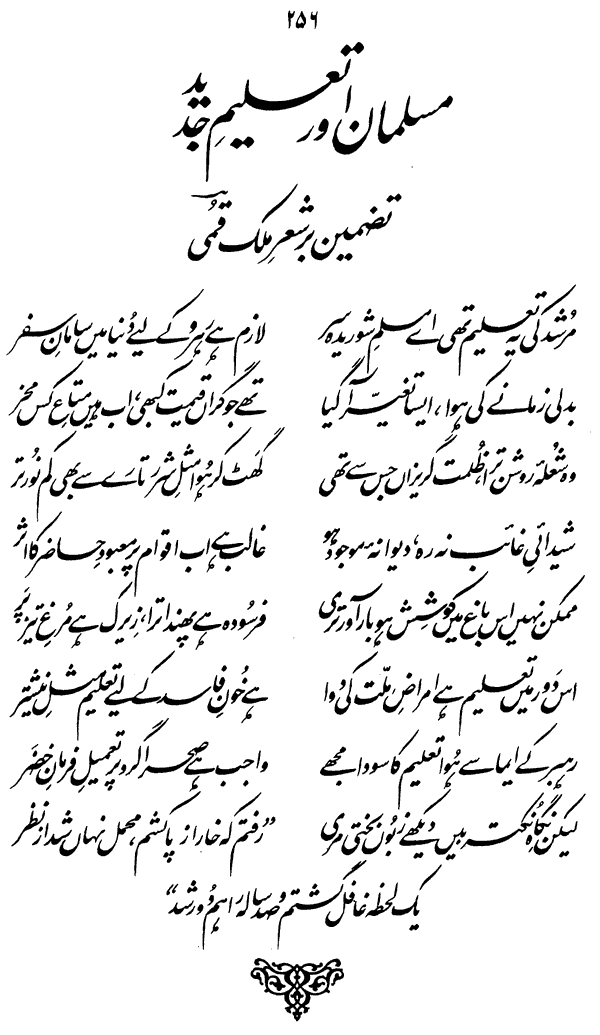 ۲۵۶
مسلمان اور تعلیمِ جدید
تضمین بر شعرِ ملک قُمی
مُرشد کی یہ تعلیم تھی اے مسلمِ شوریدہ سر لازم ہے رہرو کے لیے دُنیا میں سامانِ سفر
بدلی زمانے کی ہوا، ایسا تغیّر آگیا تھے جو گراں قیمت کبھی، اب ہیں متاعِ کس مخر
وہ شُعلۂ روشن ترا ظُلمت گریزاں جس سے تھی گھٹ کر ہُوا مثلِ شرر تارے سے بھی کم نُور تر
شیدائیِ غائب نہ رہ، دیوانۂ موجود ہو غالب ہے اب اقوام پر معبودِ حاضر کا اثر
ممکن نہیں اس باغ میں کوشش ہو بارآور تری فرسودہ ہے پھندا ترا، زِیرک ہے مُرغِ تیز پر
اس دَور میں تعلیم ہے امراضِ مِلّت کی دوا ہے خُونِ فاسد کے لیے تعلیم مثلِ نیشتر
رہبر کے ایما سے ہُوا تعلیم کا سودا مجھے واجب ہے صحرا گرد پر تعمیلِ فرمانِ خضَر
لیکن نگاہِ نُکتہ بیں دیکھے زبُوں بختی مری “رفتم کہ خار از پا کشم، محمل نہاں شد از نظر
یک لحظہ غافل گشتم و صد سالہ راہم دُور شد”